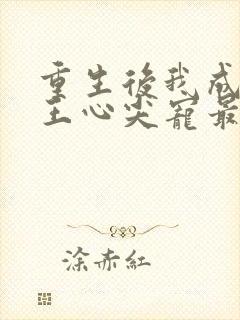 重生後我成
王心尖寵最
涂赤紅